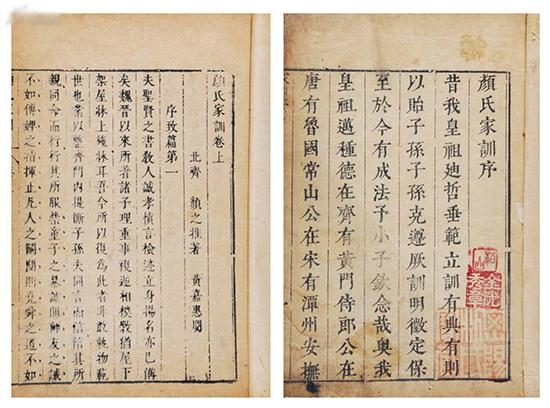 顏氏家訓序
昔我皇祖廸哲垂範立訓有典有則
以貽子孫子孫克遵厥訓明徵定保
至於今有成法予小子欽念哉奥我
皇祖邁種德在齊有黃門侍郎公在
唐有魯國常山公在宋有潭州安撫
顏氏家訓卷上
北齊 顏之推著 黃嘉惠閱
序致篇第一
夫聖賢之書教人誠孝慎言檢迹立身揚名亦已備
矣魏晉以來所著諸子理重事複遞相模斆猶屋下
架屋牀上施牀耳吾今所以復為此者非敢軌物範
世也業以整齊門內提撕子孫夫同言而信信其所
親同命而行行其所服禁童子之暴謔則師友之誡
不如傅婢之指揮止凡人之鬬鬩則堯舜之道不如